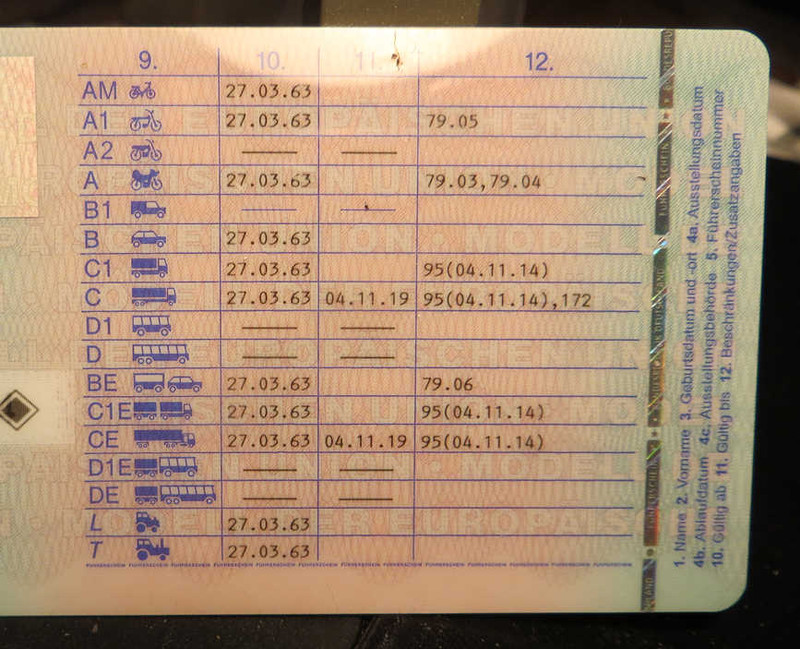 9. 10. 11. 12.
AM 27.03.63
A1 27.03.63 79.05
A2 — —
A 27.03.63 79.03,79.04
B1 — —
B 27.03.63
C1 27.03.63 95(04.11.14)
C 27.03.63 04.11.19 95(04.11.14),172
D1 — —
D — —
BE 27.03.63 79.06
C1E 27.03.63 95(04.11.14)
CE 27.03.63 04.11.19 95(04.11.14)
D1E — —
DE — —
L 27.03.63
T 27.03.63
1. Name 2. Vorname 3. Geburtsdatum und -ort 4a. Ausstellungsdatum
4b. Ablaufdatum 4c. Ausstellungsbehörde 5. Führerscheinnummer
10. Gültig ab 11. Gültig bis 12. Beschränkungen/Zusatzangaben